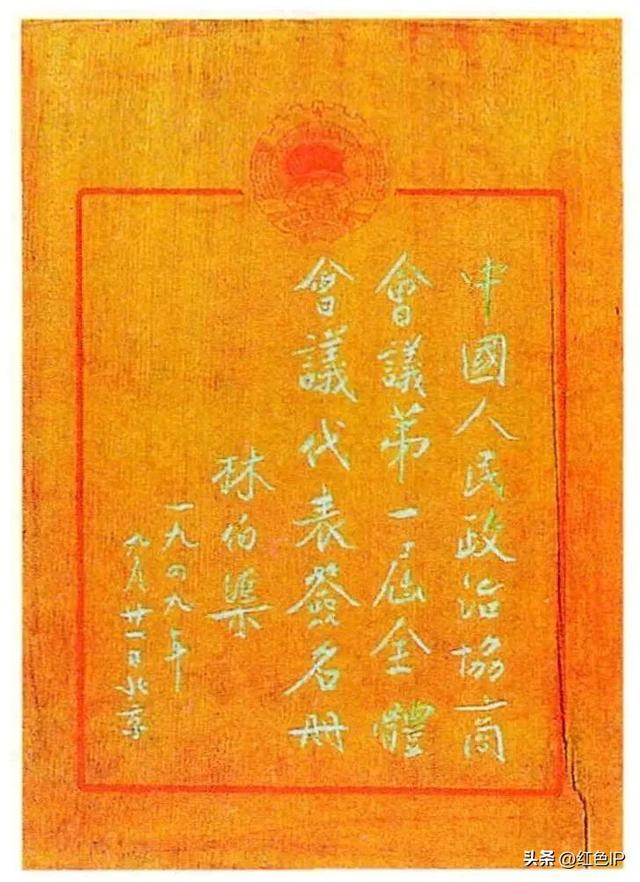 中國人民政治協商
會議第一屆全體
會議代表簽名冊
林伯渠
一九四九年
九月廿一日北京
头条 @红色IP